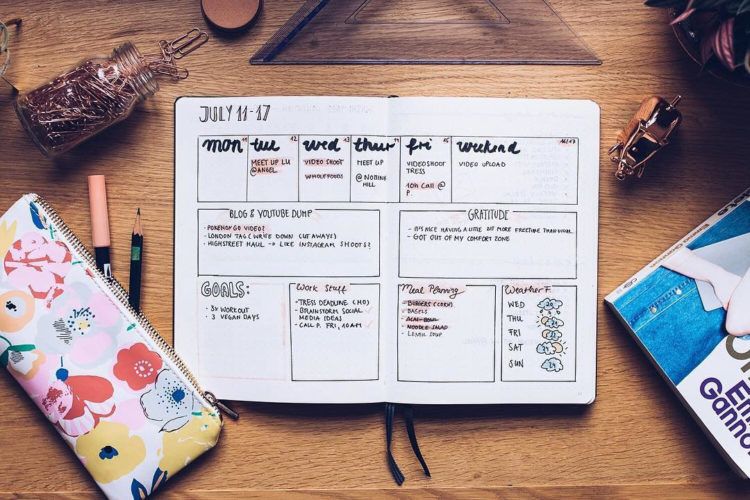 JULY 11-17
mon
tue 12
MEET UP LU
@ANGEL
wed 13
VIDEO SHOOT
WHOLEFOODS
thur 14
MEET UP
@ NOTTING
HILL
fri 15
VIDEOSHOOT
TRESS
10h CALL @
P.
weekend 16/17
VIDEO UPLOAD
BLOG & YOUTUBE DUMP
- POKEMON GO VIDEO?
- LONDON TAG (WRITE DOWN CUT AWAYS)
- HIGHSTREET HAUL → LIKE INSTAGRAM SHOOTS?
GRATITUDE
- IT'S NICE HAVING A LITTLE BIT MORE FREETIME THAN USUAL
- GOT OUT OF MY COMFORT ZONE
GOALS:
- 3x WORKOUT
- 3 VEGAN DAYS
Work Stuff
- TRESS DEADLINE (MO)
- BRAINSTORM SOCIAL
MEDIA IDEAS
- CALL P. FRI, 10AM
Meal Planning
- BURGERS
- BAGELS
- ACAI BOWL
- NOODLE SALAD
- LENTIL SOUP
Weather F.
WED
THU
FRI
SAT
SUN
Em
Ganno